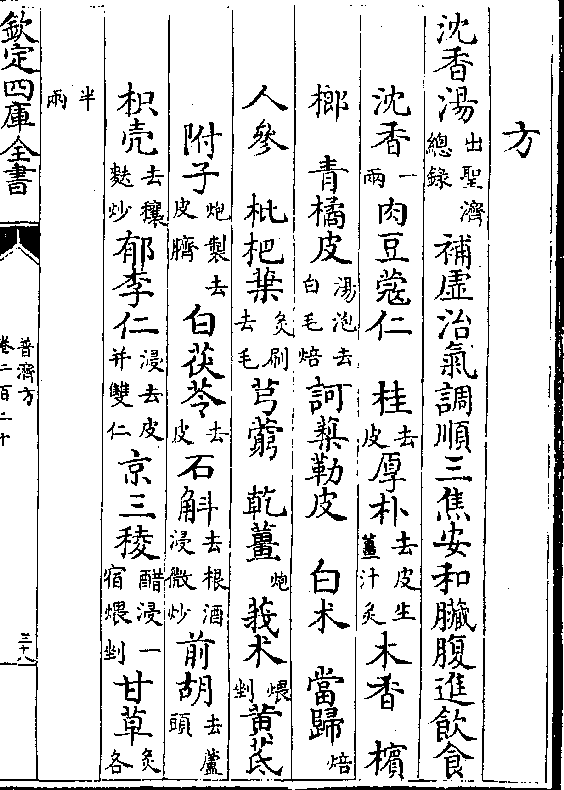 方
沈香湯出聖濟總錄補虛治氣調順三焦安和臟腹進飲食
沈香一兩肉豆蔻仁桂去皮厚朴去皮生薑汁炙木香檳
榔青橘皮湯泡去白毛焙訶藜勒皮白术當歸焙
人參枇杷葉炙刷去毛芎藭乾薑炮莪术煨剉黄芪
附子炮製去皮臍白茯苓去皮石斛去根酒浸微炒前胡去蘆頭
枳壳去穰麩炒郁李仁浸去皮并雙仁京三稜醋浸一宿煨剉甘草炙各
半兩
欽定四庫全書
普濟方
卷二百二十
三十八